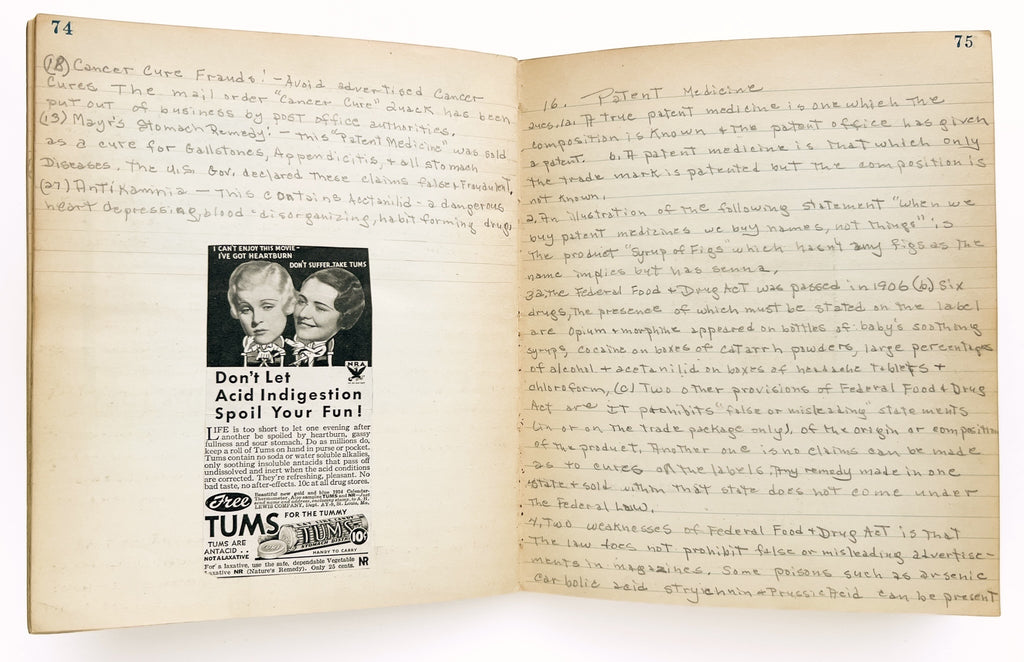 74
(18) Cancer Cure Frauds! - Avoid advertised Cancer
Cures The mail order "Cancer Cure" Quack has been
put out of business by post office authorities.
(13) Mayr's Stomach Remedy! - This "Patent Medicine" was sold
as a cure for Gallstones, Appendicitis, & all stomach
Diseases. The U.S. Gov. declared these claims false & Fraudulent.
(27) Antikamnia - This contains Acetanilid - a dangerous
heart depressing, blood-disorganizing, habit forming drug
I CAN'T ENJOY THIS MOVIE-
I'VE GOT HEARTBURN
DON'T SUFFER..TAKE TUMS
NRA
Don't Let
Acid Indigestion
Spoil Your Fun!
LIFE is too short to let one evening after
another be spoiled by heartburn, gassy
fullness and sour stomach. Do as millions do,
keep a roll of Tums on hand in purse or pocket.
Tums contain no soda or water soluble alkalies,
only soothing insoluble antacids that pass off
undissolved and inert when the acid conditions
are corrected. They're refreshing, pleasant. No
bad taste, no after-effects. 10c at all drug stores.
Free
Beautiful new gold and blue 1934 Calendar-
Thermometer. Also samples TUMS and NR—Just
LEWIS COMPANY, Dept. St. Louis, Mo.
TUMS
FOR THE TUMMY
TUMS ARE
ANTACID . .
NOT A LAXATIVE
TUMS
10¢
HANDY TO CARRY
For a laxative, use the safe, dependable Vegetable
Laxative NR (Nature's Remedy). Only 25 cents.
NR
75
16. Patent Medicine
ques. 1a) A true patent medicine is one which the
composition is known & the patent office has given
a patent. b. A patent medicine is that which only
the trade mark is patented but the composition is
not known.
2. An illustration of the following statement "when we
buy patent medicines we buy names, not things" is
the product "Syrup of Figs" which hasn't any figs as the
name implies but has senna.
3a, The Federal Food & Drug Act was passed in 1906 (b) Six
drugs, the presence of which must be stated on the label
are Opium & morphine appeared on bottles of baby's soothing
syrups, cocaine on boxes of catarrh powders, large percentages
of alcohol + acetanilid on boxes of headache tablets &
chloroform, (c) Two other provisions of Federal Food & Drug
Act are It prohibits "false or misleading" statements
(in or on the trade package only), of the origin or composition
of the product. Another one is no claims can be made
as to cures on the labels. Any remedy made in one
state & sold within that state does not come under
the Federal Law.
4, Two weaknesses of Federal Food & Drug Act is that
the law does not prohibit false or misleading advertise-
ments in magazines. Some poisons such as arsenic
Carbolic acid strychnin & Prussic Acid can be present